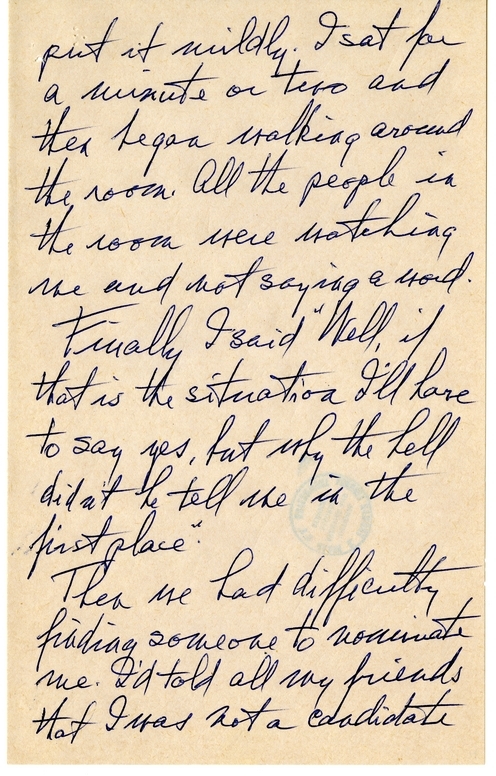 put it mildly. I sat for
a minute or two and
then began walking around
the room. All the people in
the room were watching
me and not saying a word.
Finally I said "Well, if
that is the situation I'll have
to say yes, but why the hell
didn't he tell me in the
first place".
Then we had difficulty
finding someone to nominate
me. I'd told all my friends
that I was not a candidate